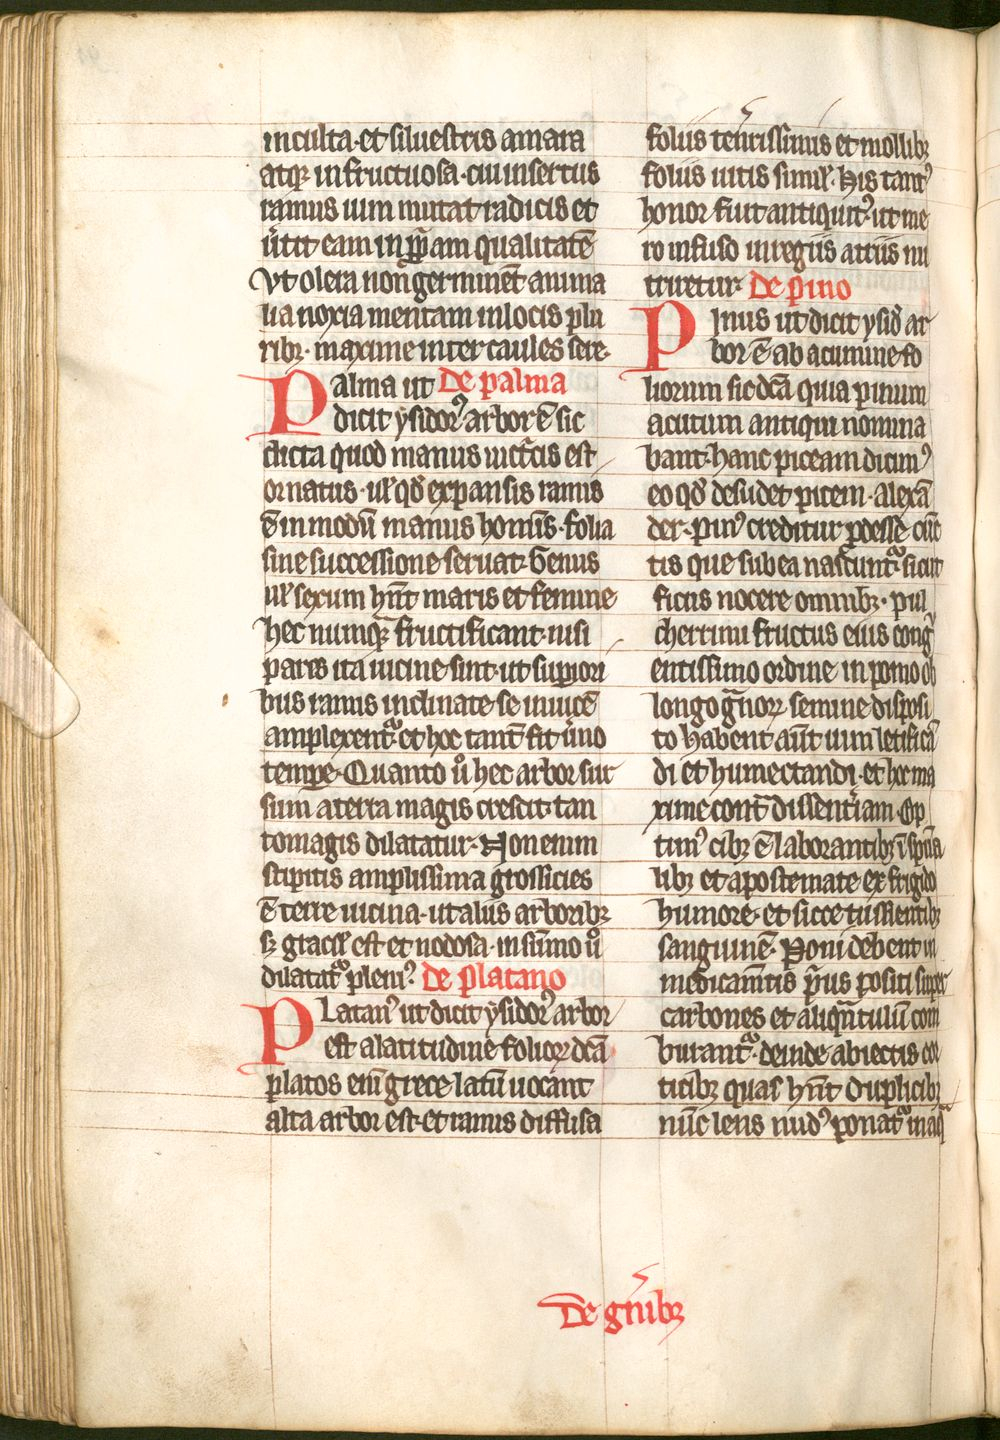 inculta·et siluestris amara
atq ̄ infructuosa·cui insertus
ramus uim mutat radicis et
u̾tit eam in ꝓp̄am qualitatē
Vt olera non̄ germinēt anima
lia noxia mentam in locis plu
ribꝫ·maxime inter caules sere·
Palma ut De palma
dicit ysidorꝰ arbor ē sic
dicta quod manus uict̾cis est
ornatus·ul̾ qđ expansis ramis
ē in modū manus homīs·folia
sine successione seruat·Genus
ul̾ sexum hn̄t maris et femine
hec numqᷓ fructificant·nisi
pares ita uicine sint·ut supiori
bus ramis inclinate se inuicē
amplexentᷣ et hoc tant̄ fit u̾no
temꝑe·Quanto u̾ hec arbor sur
sum a terra magis crescit·tan
to magis dilatatur·Non enim
stipitis amplissima grossicies
ē terre uicina·ut aliis arboribꝫ
sꝫ gracil̾ est et nodosa·in sūmo u̾
dilatatᷣ pleniꝰ· De platano
Platanꝰ ut dicit ysidorꝰ arbor
est a latitudine folioꝝ dc̄a
platos em̄ grece latū uocant
alta arbor est·et ramis diffusa
foliis ten̾rissimis et mollibꝫ
foliis uitis simil̾·His tantꝰ
honor fiut antiquitꝰ·ut me
ro infuso in regiis atriis nu
triretur· De pino
Pinus ut dicit ysid̾ ar
bor ē ab acumine fo
liorum sic dc̄a quia pinum
acutum antiqui nomina
bant·hanc piceam dicimꝰ
eo qđ desudet picem·Alexā
der·pinꝰ creditur ꝓdesse cūc
tis que sub ea nascuntᷣ sicut
ficus nocere omnibꝫ·pul
cherrimi fructus eius cong̾
entissimo ordine in pomo ob
longo g̾noꝝ semine disposi
to habent aūt uim letificā
di et humectandi·et hoc ma
xime cont̾ dissent̾iam·Op
timꝰ cibꝫ ē laborantibꝫ ī spūa
libꝫ et apostemate ex frigido
humore·et sicce tussientibꝫ
sanguinē·Poni debent in
medicam̄tis p̾us positi super
carbones et aliqᷓntulū com
burantᷣ·deinde abiectis cor
ticibꝫ quas hn̄t duplicibꝫ
nūc lens nudꝰ ponatᷣ in aq̄
De g̾nibꝫ